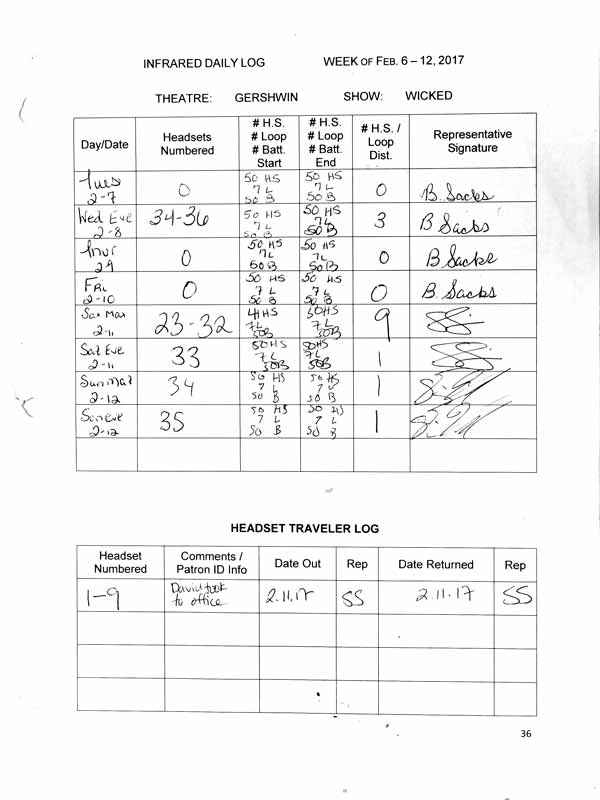 INFRARED DAILY LOG WEEK OF FEB. 6 – 12, 2017
THEATRE: GERSHWIN SHOW: WICKED
Day/Date Headsets Numbered # H.S. # Loop # Batt. Start # H.S. # Loop # Batt. End # H.S. / Loop Dist. Representative Signature
Tues 2-7 0 50 HS 7 L 50 B 50 HS 7 L 50 B 0 B. Sacks
Wed Eve 2-8 34-36 50 HS 7 L 50 B 50 HS 7 L 50 B 3 B Sacks
Thur 2 9 0 50 HS 7 L 50 B 50 HS 7 L 50 B 0 B Sacks
FRI 2-10 0 50 HS 7 L 50 B 50 HS 7 L 50 B 0 B. Sacks
Sat Mat 2-11 23-32 41 HS 7 L 50 B 50 HS 7 L 50 B 9
Sat Eve 2-11 33 50 HS 7 L 50 B 50 HS 7 L 50 B 1
Sun Mat 2-12 34 50 HS 7 L 50 B 50 HS 7 L 50 B 1
Sun eve 2-12 35 50 HS 7 L 50 B 50 HS 7 L 50 B 1
HEADSET TRAVELER LOG
Headset Numbered Comments / Patron ID Info Date Out Rep Date Returned Rep
1-9 David took to office 2.11.17 SS 2.11.17 SS
36